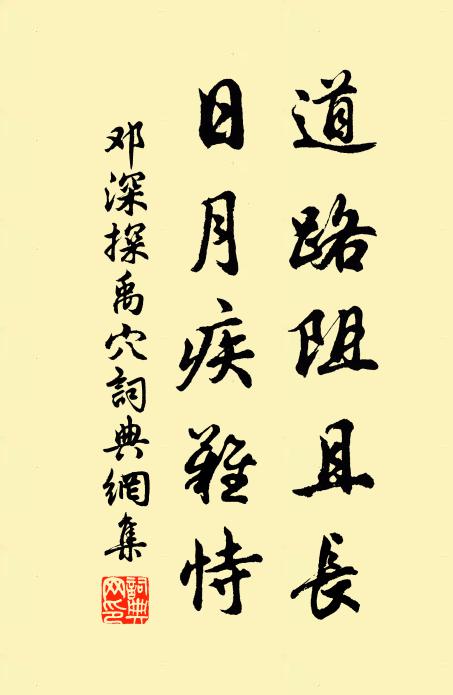 道路阻且長
日月疾難恃
邓深探禹穴詞典網集
詞典網印